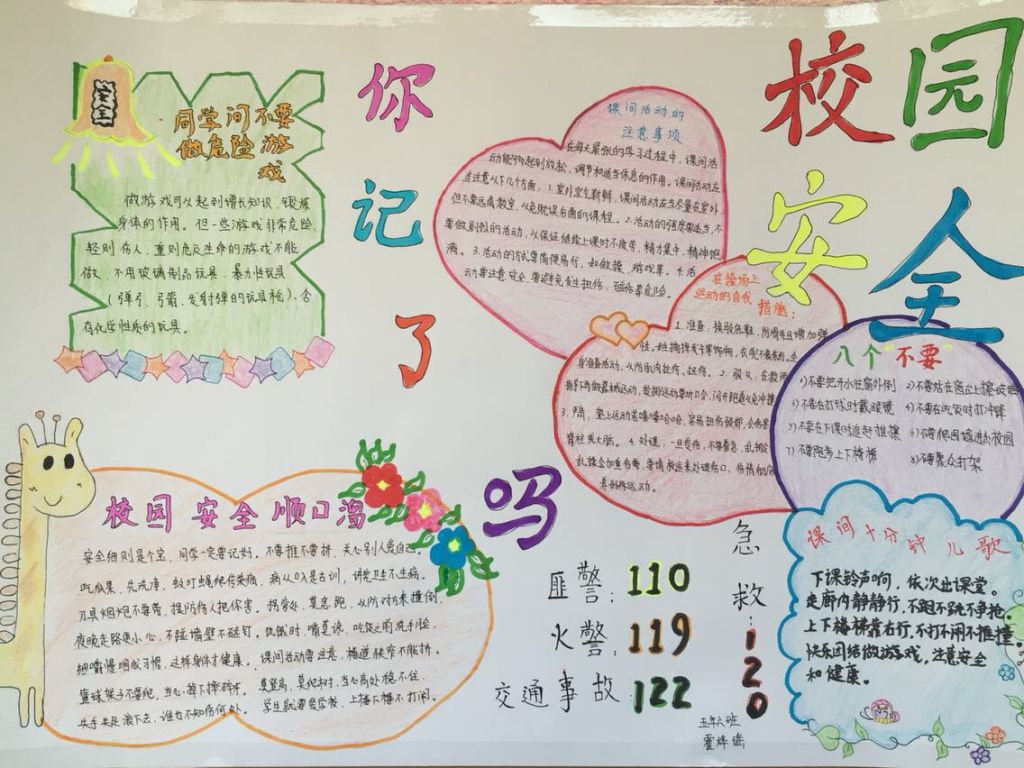 校园
安全
你
记
了
吗
安全
同学间不要
做危险游
戏
做游戏可以起到增长知识、锻炼
身体的作用。但一些游戏非常危险,
轻则伤人,重则危及生命的游戏不能
做、不用玻璃制品玩具、暴力性玩具
(弹弓、弓箭、发射弹的玩具枪)、含
有化学性质的玩具。
课间活动的
注意事项
在每天紧张的学习过程中,课间活
动能够起到放松,调节和适当休息的作用。课间活动应
当注意以下几个方面,1.室外空气新鲜,课间活动应当尽量在室外,
但不要远离教室,以免耽误后面的课程。2.活动的强度要适当,不
要做剧烈的活动,以保证继续上课时不疲劳,精力集中,精神饱
满。3.活动的方式要简便易行,如做操,游戏等。4.活
动要注意安全,要避免发生扭伤,碰伤等危险。
在操场上
运动的自我
措施:
八个“不要”
1)不要把开水往窗外倒
2)不要站在窗台上擦玻璃
3)不要在打球时戴眼镜
4)不要在吃饭时打冲锋
5)不要在下课时追赶推搡
6)不要爬围墙进出校园
7)不要跑步上下楼梯
8)不要聚众打架
校园安全顺口溜
安全细则是个宝,同学一定要记好。不要推不要挤,关心别人爱自己。
吃瓜果,先洗净,蚊叮蝇爬传染病,病从口入是古训,讲究卫生不生病。
刃具烟炮不要带,提防伤人把你害。拐弯处,莫急跑,从防对方来撞倒。
夜晚走路更小心,不碰墙壁不碰钉。饥饿时,嘴莫馋,吃饭之前洗手脸,
细嚼慢咽成习惯,这样身体才健康。课间活动要注意,楼道狭窄不能挤。
匪警:110
火警:119
交通事故122
急
救
:
1
2
0
五年六班
课间十分钟儿歌
下课铃声响,依次出课堂。
走廊内静静行,不跑不跳不争抢,
上下楼梯靠右行,不打不闹不推撞
快乐团结做游戏,注意安全
和健康。